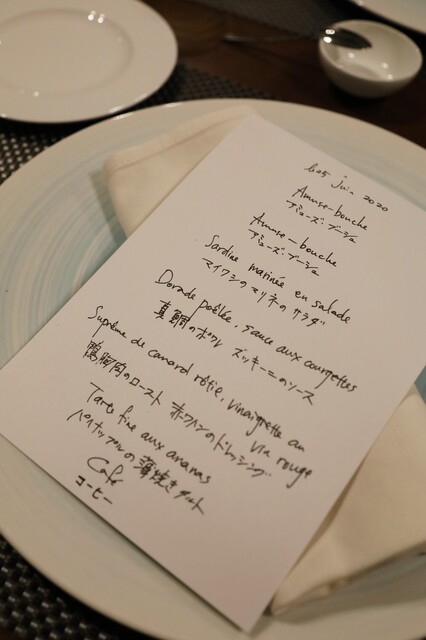 juin 2020
Amuse-bouche
アミューズ・ブーシュ
Amuse-bouche
アミューズ・ブーシュ
Sardine marinée en salade
マイワシのマリネのサラダ
Dorade poêlée, sauce aux courgettes
真鯛のポワレ ズッキーニのソース
Suprême de canard rôtie, vinaigrette au vin rouge
鴨胸肉のロースト 赤ワインのドレッシング
Tarte fine aux ananas
パイナップルの薄焼きタルト
Café
コーヒー